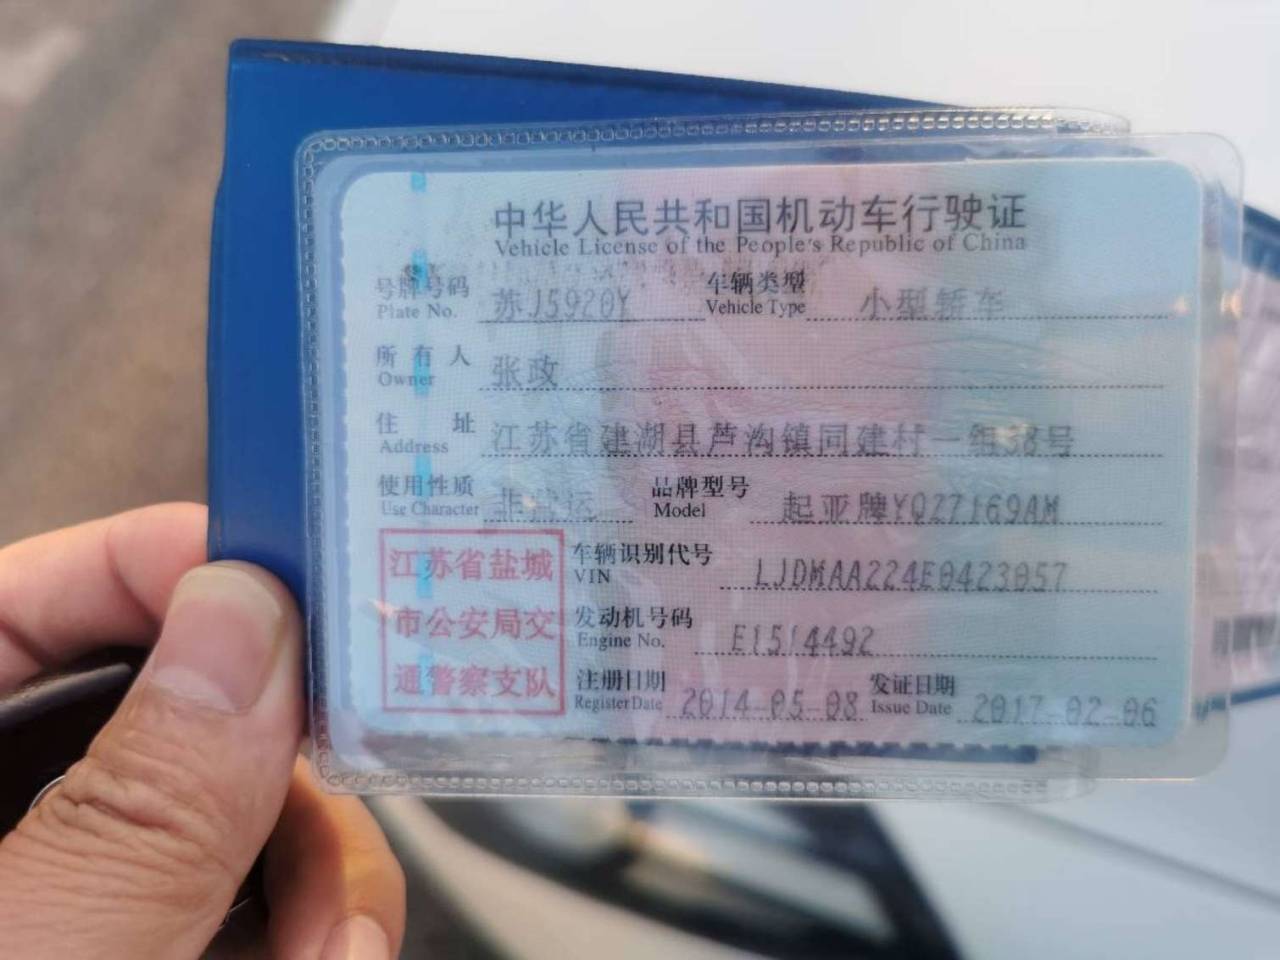 中华人民共和国机动车行驶证
Vehicle License of the People's Republic of China
号牌号码 苏J5920Y 车辆类型 小型轿车
Plate No. Vehicle Type
所有人 张政
Owner
住址 江苏省建湖县芦沟镇同建村一组38号
Address
使用性质 非营运 品牌型号 起亚牌YQZ7169AM
Use Character Model
江苏省盐城
市公安局交
通警察支队
车辆识别代号 LJDMAA224E0423057
VIN
发动机号码 E1514492
Engine No.
注册日期 2014-05-08 发证日期 2017-02-06
Register Date Issue Date